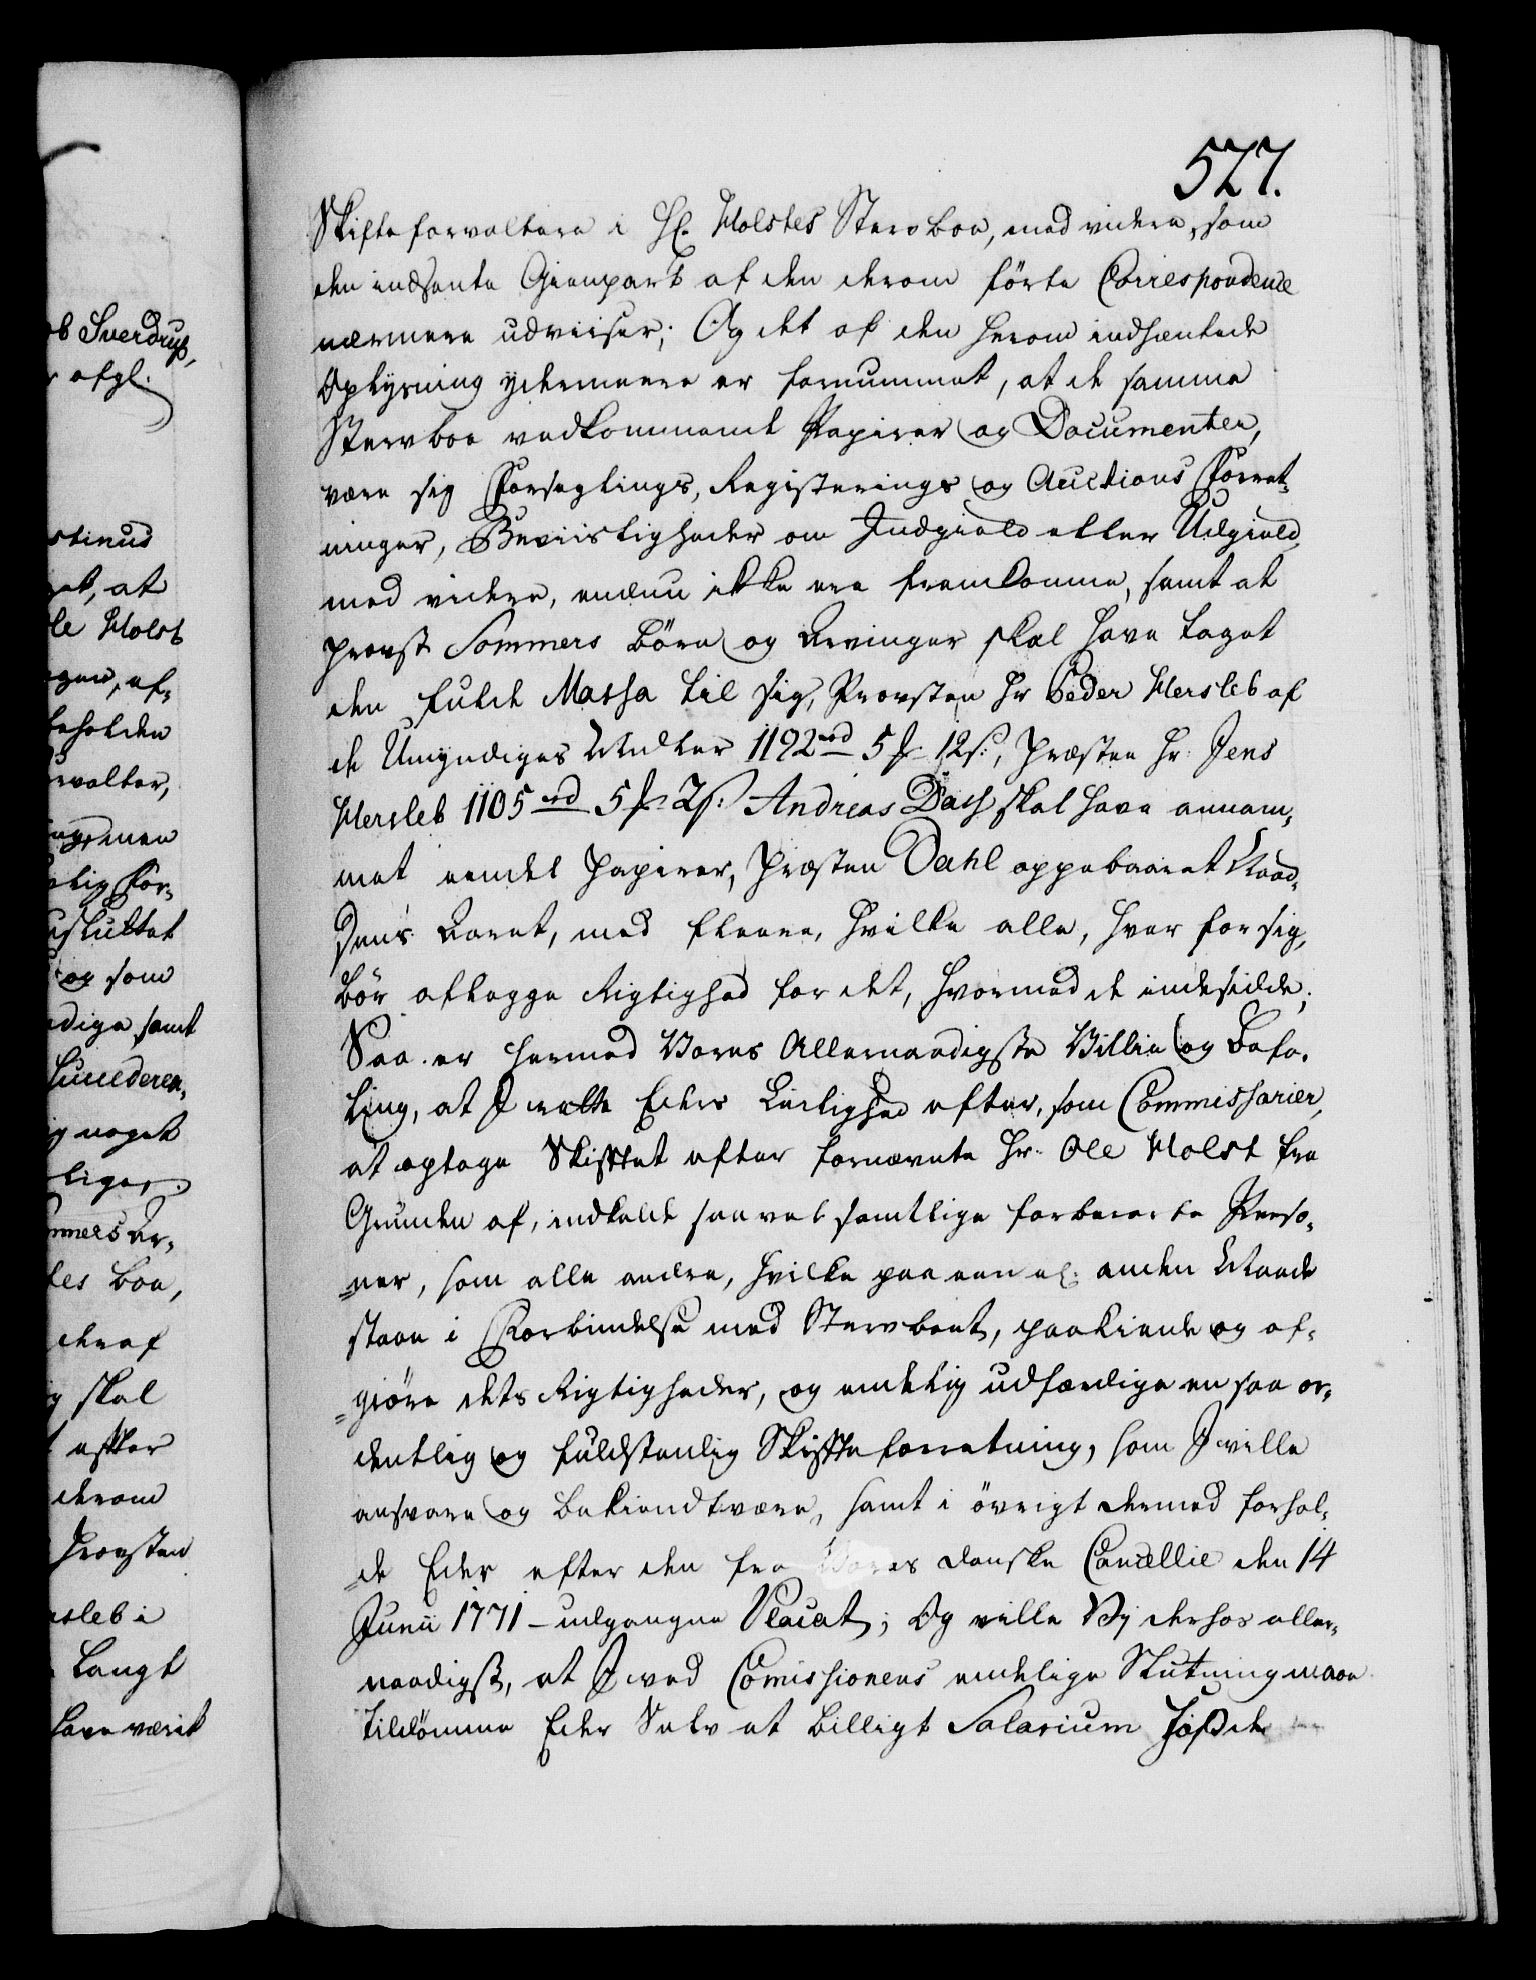 527.
Skifteforvaltere i Hl. Holstes Sterv boe, med videre, som
den indsente Gienpart af den derom förte Correspondence
nærmere udviiser; Og det af den herom indhentede
Oplysning ydermeere er fornummet, at de samme
Stervboe vedkommende Papirer og Documenter,
være sig Forseglings, Registerings og Auctions Forret-
ninger, Beviisligheder om Indgield eller Udgield
med videre, endnu ikke ere fremkomne, samt at
Provst Sommers Börn og Arvinger skal have taget
den fulde Massa til sig, Provsten Hr Peder Hersleb af
de Umyndiges Midler 1192 rd 5 /: 12 s:, Præsten Hr. Jens
Hersleb 1105 rd 5 /: 2 s: Andreas Dass skal have annam-
met eendel Papirer, Præsten Dahl oppebaaret Naad-
Sens Aaret, med fleere, hvilke alle, hver for sig,
bör aflegge Rigtighed for det, hvormed de indesidde;
Saa er hermed Vores Allernaadigste Villie og Befa-
ling, at I rette Eders Leilighed efter, som Commissarier,
at optage Skifftet efter fornævnte Hr. Ole Holst fra
Grunden af, indkalde saavel samtlige forberørte Perso-
ner, som alle andre, hvilke paa een el. anden Maade
staae i Forbindelse med Stervboet, paakiende og af-
giöre dets Rigtigheder, og endelig udfærdige en saa or-
dentlig og fuldstendig Skiffteforretning, som I ville
ansvare og bekiendt være, samt i övrigt dermed forhol-
de Eder efter den fra Vores danske Cancellie den 14
Junii 1771 - udgangne Placat; Og ville Vy derhos aller-
naadigst, at I ved Comissionens endelige Slutning maae
tildömme Eder Selv et billigt Salarium hos de
ob Sverdrup,
afgl.
stinus
get, at
le Holst
af-
beholden
rvalter,
men
For-
sluttet
og som
dige, samt
noget
liger.
mmers Ar-
tes boe,
deraf
skal
effter
derom
Provsten
rsleb i
langt
have værit